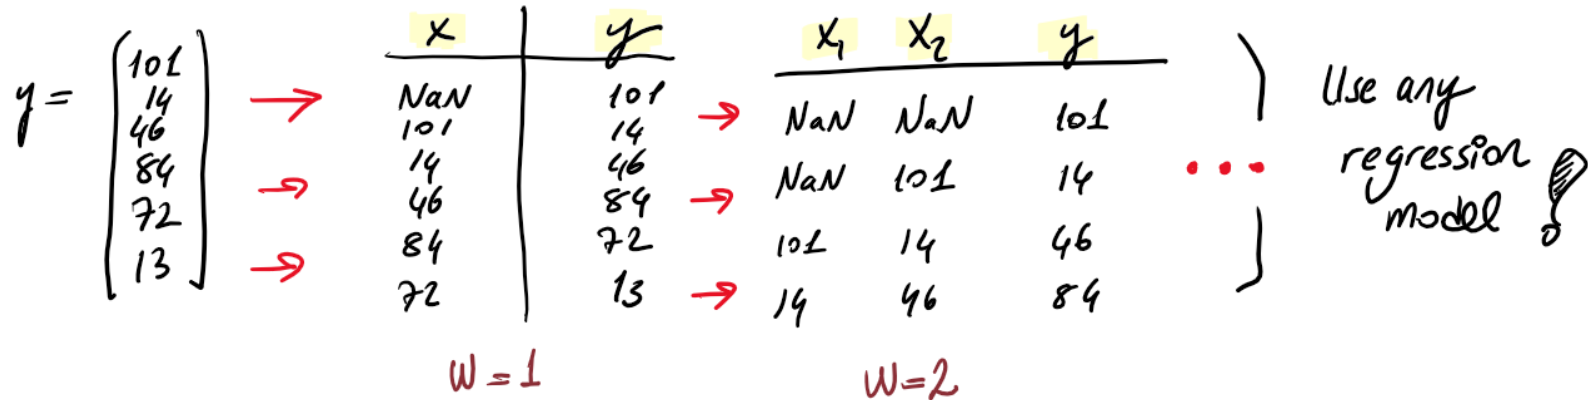 y =
101
14
46
84
72
13
x y
NaN 101
101 14
14 46
46 84
84 72
72 13
W = 1
X₁ X₂ y
NaN NaN 101
NaN 101 14
101 14 46
14 46 84
W = 2
...
Use any
regression
model !